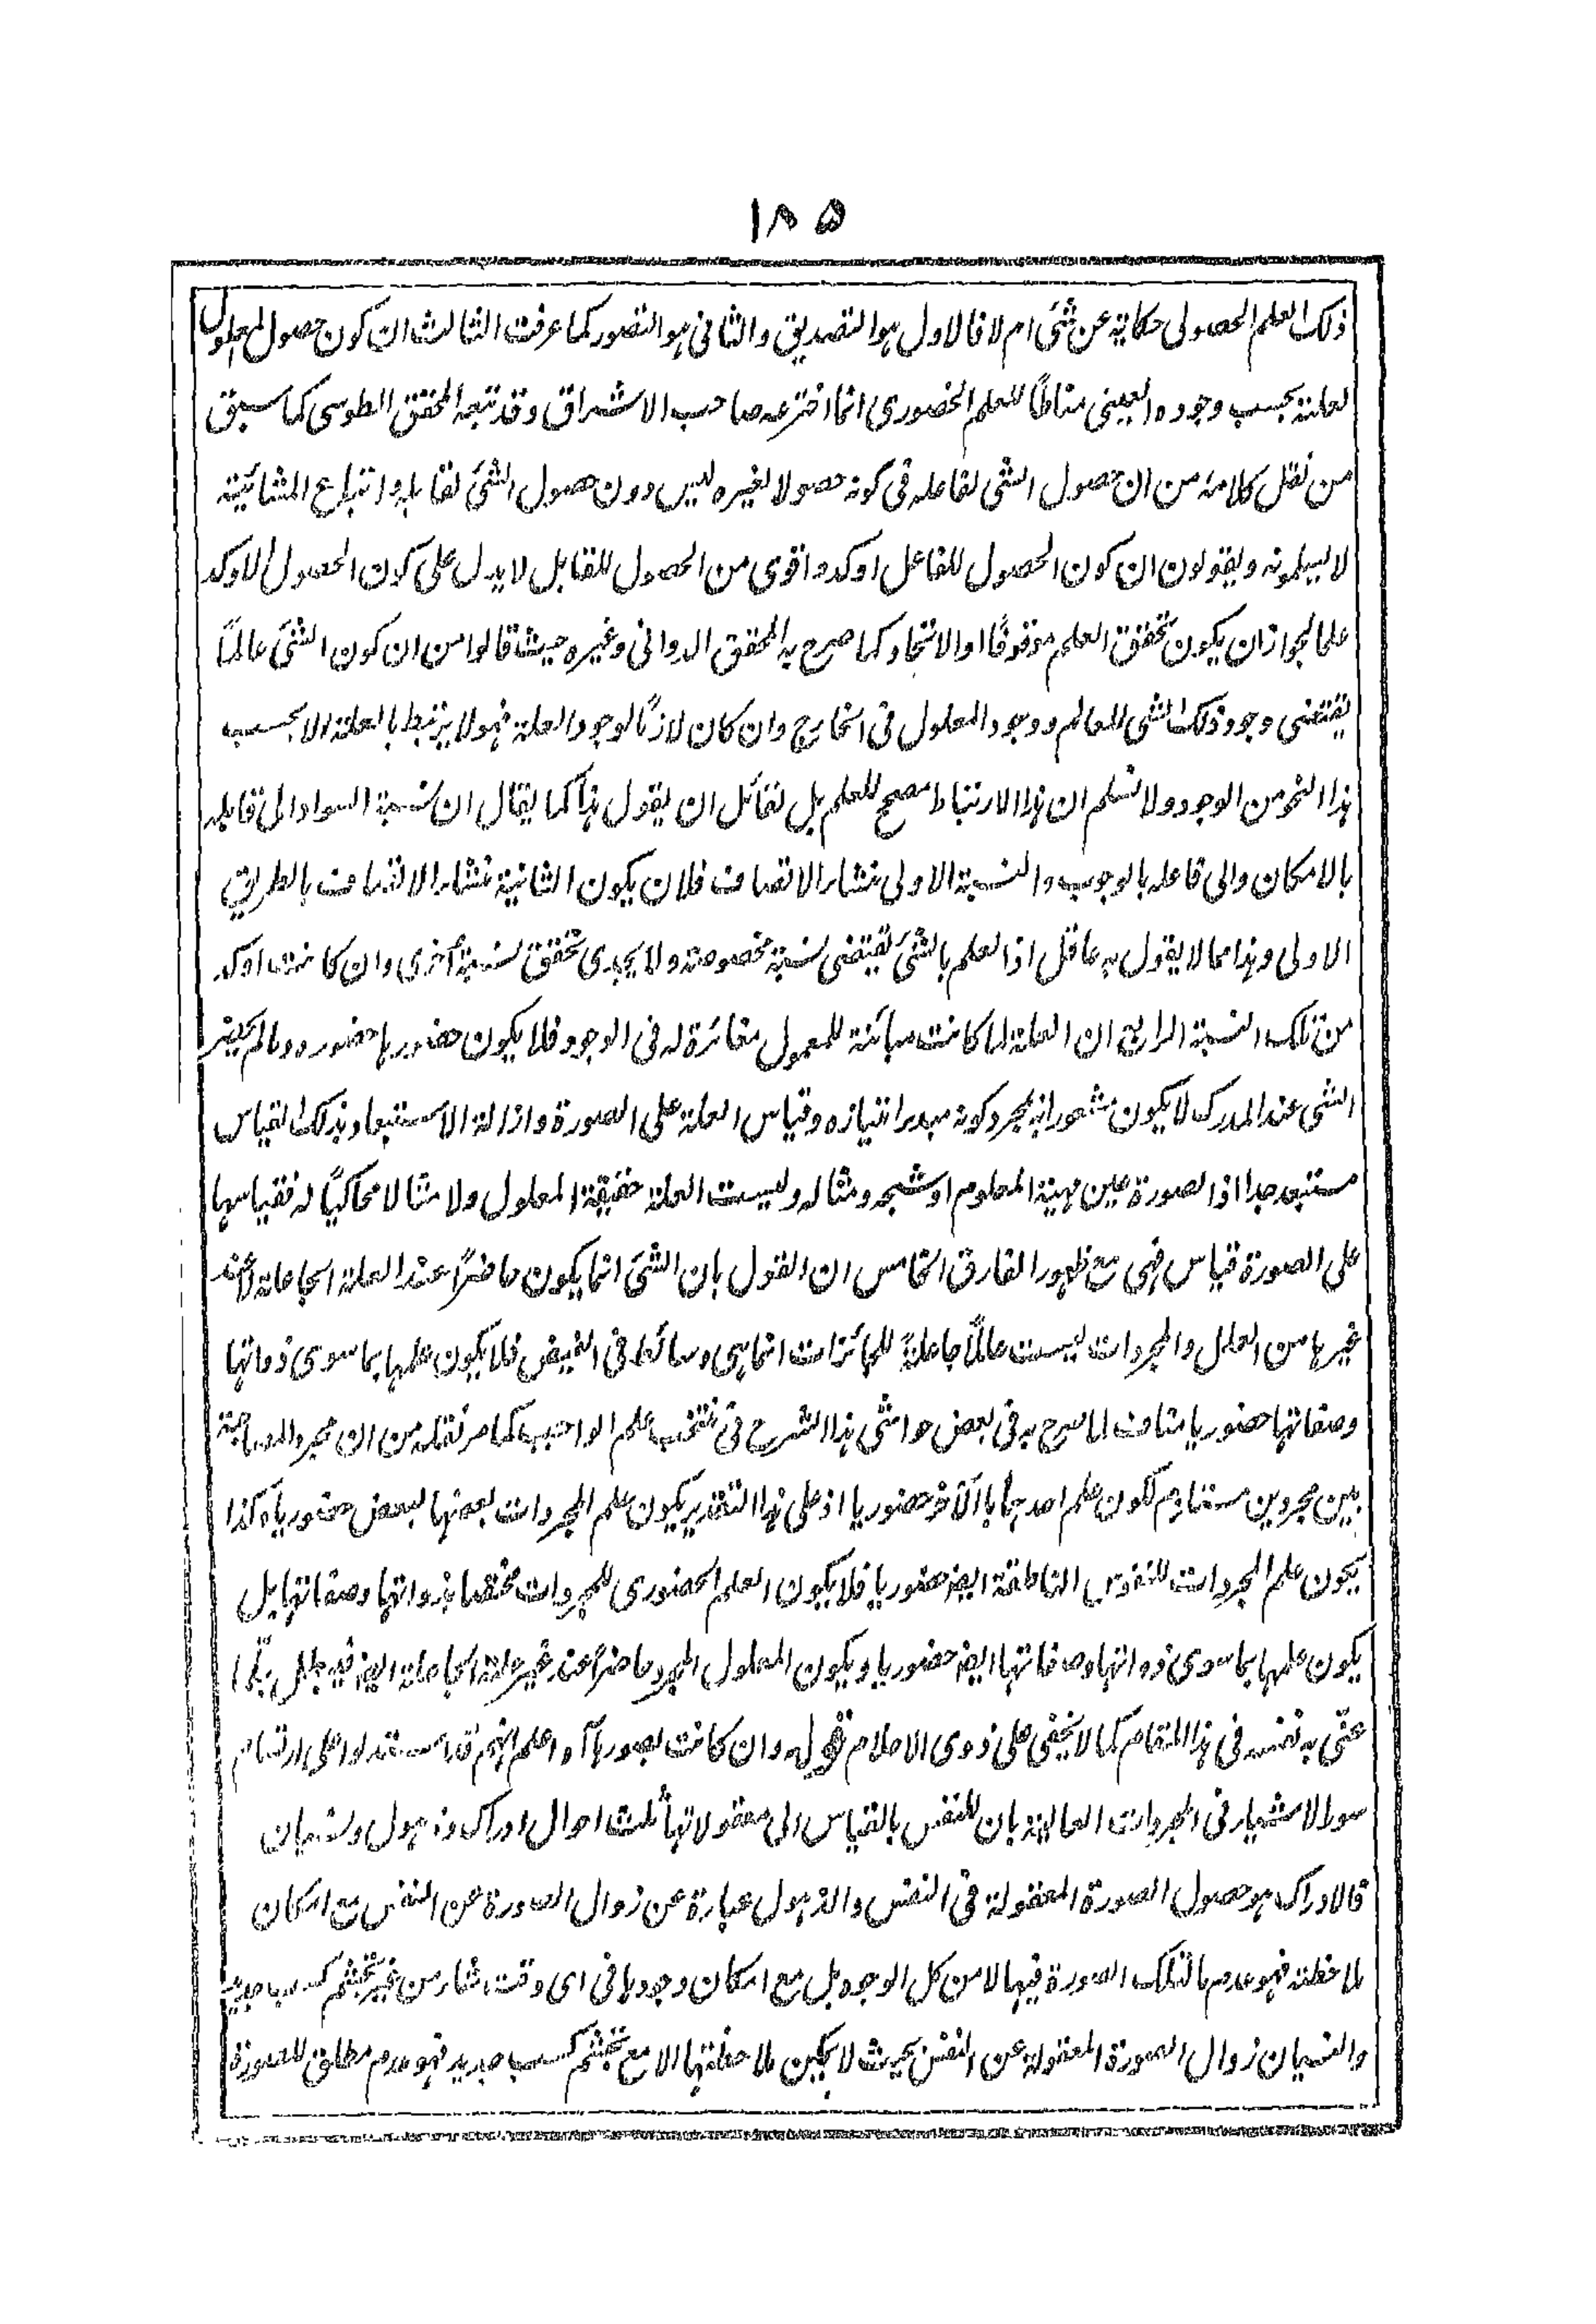 ١٨٥
ذلك العلم الحصولى حكاية عن شئ ام لا فالاول هو التصديق والثانى هو التصور كما عرفت الثالث ان كون حصول المعلول
لعلته بحسب وجوده العينى مناطًا للعلم الحضورى انما اخترعه صاحب الاشراق وقد تبعه المحقق الطوسى كما سبق
من نقل كلامه من ان حصول الشئ لفاعله فى كونه حصولا لغيره ليس دون حصول الشئ لقابله واتباع المشائية
لا يسلمونه ويقولون ان كون الحصول للفاعل اوكد واقوى من الحصول للقابل لا يدل على كون الحصول الاوكد
علما لجواز ان يكون تحقق العلم موقوفًا او الاتحاد كما صرح به المحقق الدوانى وغيره حيث قالوا من ان كون الشئ عالمًا
يقتضى وجود ذلك الشئ للعالم ووجود المعلول فى الخارج وان كان لازمًا لوجود العلة فهو لا يرتبط بالعلة الا بحسب
هذا النحو من الوجود ولا نسلم ان هذا الارتباط مصحح للعلم بل لقائل ان يقول هذا كما يقال ان نسبة السواد الى قابله
بالامكان والى فاعله بالوجوب والنسبة الاولى منشأ الاتصاف فلان يكون الثانية منشأ الاتصاف بالطريق
الاولى وهذا مما لا يقول به عاقل اذ العلم بالشئ يقتضى نسبة مخصوصة ولا يجدى تحقق نسبة أخرى وان كانت اوكد
من تلك النسبة الرابع ان العلة لما كانت مبائنة للمعمول مغائرة له فى الوجود فلا يكون حضورها حضوره وما لم يحضر
الشئ عند المدرك لا يكون شعورا به بمجرد كونه مبدء امتيازه وقياس العلة على الصورة وازالة الاستبعاد بذلك القياس
مستبعد جدا اذ الصورة عين مهية المعلوم او شبحه ومثاله وليست العلة حقيقة المعلول ولا مثالا محاكيًا له فقياسها
على الصورة قياس فقهى مع ظهور الفارق الخامس ان القول بان الشئ انما يكون حاضرًا عند العلة الجاعلة لا عند
غيرها من العلل والمجردات ليست عللًا جاعلةً للجائزات انما هى وسائط فى الفيض فلا يكون علمها بما سوى ذواتها
وصفاتها حضوريا مناف لما صرح به فى بعض حواشى هذا الشرح فى علم الواجب كما مر نقله من ان مجرد المصاحبة
بين مجردين مستلزم لكون علم احدهما بالآخر حضوريا اذ على هذا التقدير يكون علم المجردات بعضها لبعض حضوريا وكذا
يكون علم المجردات للنفوس الناطقة ايضا حضوريا فلا يكون العلم الحضورى للمجردات مختصا بذواتها وصفاتها بل
يكون علمها بما سوى ذواتها وصفاتها ايضا حضوريا ويكون المعلول المجرد حاضرًا عند غير علته الجاعلة ايضا فيبطل
عنّى به نفسه فى هذا المقام كما لا يخفى على ذوى الاحلام قوله وان كانت بصورها آه اعلم انهم قد استدلوا على ارتسام
صور الاشياء فى المجردات العالية بان للنفس بالقياس الى معقولاتها ثلث احوال ادراك وذهول ونسيان
فالادراك هو حصول الصورة المعقولة فى النفس والذهول عبارة عن زوال الصورة عن النفس مع امكان
ملاحظته فهو عدم ما لتلك الصورة فيها لا من كل الوجوه بل مع امكان وجودها فى اى وقت شاء من غير تجشم كسب جديد
والنسيان زوال الصورة المعقولة عن النفس بحيث لا يمكن ملاحظتها الا مع تجشم كسب جديد فهو عدم مطلق للصورة